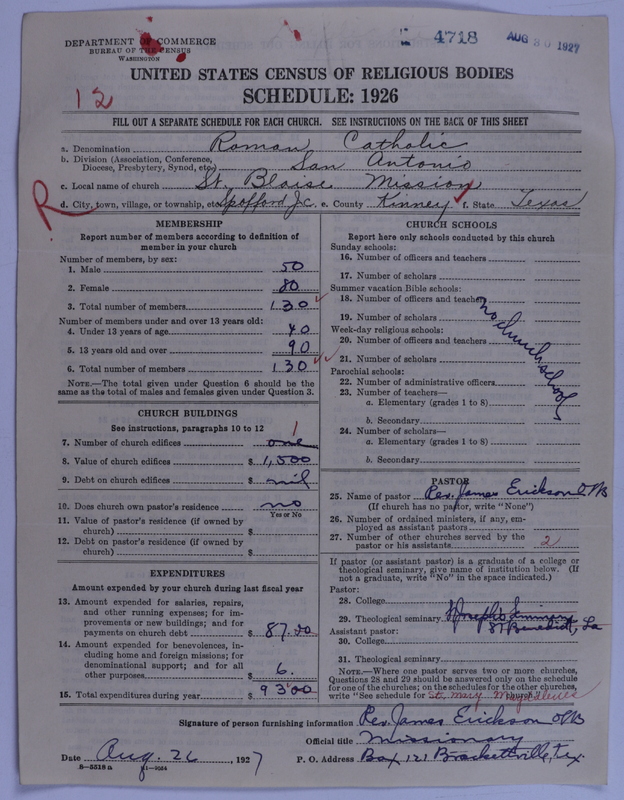 DEPARTMENT OF COMMERCE
BUREAU OF THE CENSUS
WASHINGTON
4718 AUG 30 1927
UNITED STATES CENSUS OF RELIGIOUS BODIES
SCHEDULE: 1926
12
FILL OUT A SEPARATE SCHEDULE FOR EACH CHURCH. SEE INSTRUCTIONS ON THE BACK OF THIS SHEET
a. Denomination Roman Catholic
b. Division (Association, Conference, Diocese, Presbytery, Synod, etc.) San Antonio
c. Local name of church St. Blaise Mission
R
d. City, town, village, or township, etc. Spofford J.c. e. County Kinney f. State Texas
MEMBERSHIP
Report number of members according to definition of member in your church
Number of members, by sex:
1. Male 50
2. Female 80
3. Total number of members 130
Number of members under and over 13 years old:
4. Under 13 years of age 40
5. 13 years old and over 90
6. Total number of members 130
NOTE.—The total given under Question 6 should be the same as the total of males and females given under Question 3.
CHURCH BUILDINGS
See instructions, paragraphs 10 to 12
7. Number of church edifices one 1
8. Value of church edifices $ 1,500
9. Debt on church edifices $ nil
10. Does church own pastor's residence no
Yes or No
11. Value of pastor's residence (if owned by church) $
12. Debt on pastor's residence (if owned by church) $
EXPENDITURES
Amount expended by your church during last fiscal year
13. Amount expended for salaries, repairs, and other running expenses; for improvements or new buildings; and for payments on church debt $ 87.00
14. Amount expended for benevolences, including home and foreign missions; for denominational support; and for all other purposes $ 6.
15. Total expenditures during year $ 93.00
CHURCH SCHOOLS
Report here only schools conducted by this church
Sunday schools:
16. Number of officers and teachers
17. Number of scholars
Summer vacation Bible schools:
18. Number of officers and teachers
19. Number of scholars
Week-day religious schools:
20. Number of officers and teachers
21. Number of scholars
no church school
Parochial schools:
22. Number of administrative officers
23. Number of teachers—
a. Elementary (grades 1 to 8)
b. Secondary
24. Number of scholars—
a. Elementary (grades 1 to 8)
b. Secondary
PASTOR
25. Name of pastor Rev. James Erickson
(If church has no pastor, write "None")
26. Number of ordained ministers, if any, employed as assistant pastors
27. Number of other churches served by the pastor or his assistants 2
If pastor (or assistant pastor) is a graduate of a college or theological seminary, give name of institution below. (If not a graduate, write "No" in the space indicated.)
Pastor:
28. College
29. Theological seminary St Joseph's Seminary
St Benedict, La
Assistant pastor:
30. College
31. Theological seminary
NOTE.—Where one pastor serves two or more churches, Questions 28 and 29 should be answered only on the schedule for one of the churches; on the schedules for the other churches, write "See schedule for St. Mary Magdalene church."
Signature of person furnishing information Rev. James Erickson
Official title Missionary
Date Aug. 26, 1927 P. O. Address Box 121 Brackettville, Tex.